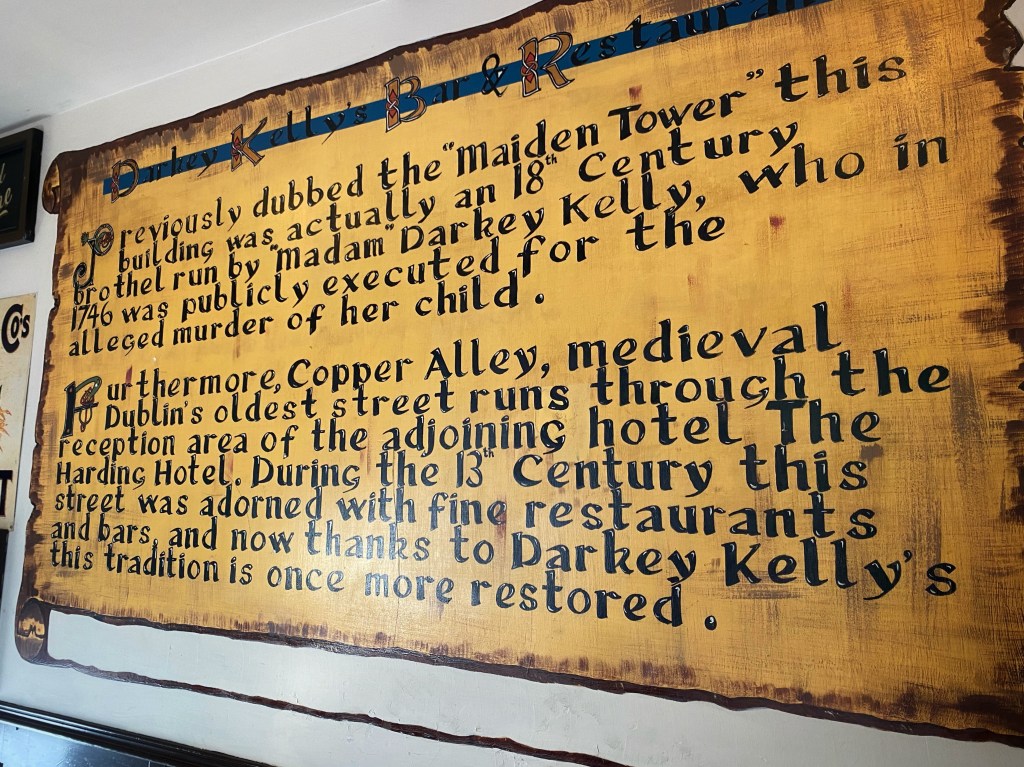 Darkey Kelly's Bar & Restaurant
Previously dubbed the "Maiden Tower" this
building was actually an 18th Century
brothel run by "Madam" Darkey Kelly, who in
1746 was publicly executed for the
alleged murder of her child.
Furthermore, Copper Alley, medieval
Dublin's oldest street runs through the
reception area of the adjoining hotel The
Harding Hotel. During the 13th Century this
street was adorned with fine restaurants
and bars, and now thanks to Darkey Kelly's
this tradition is once more restored.
Co's